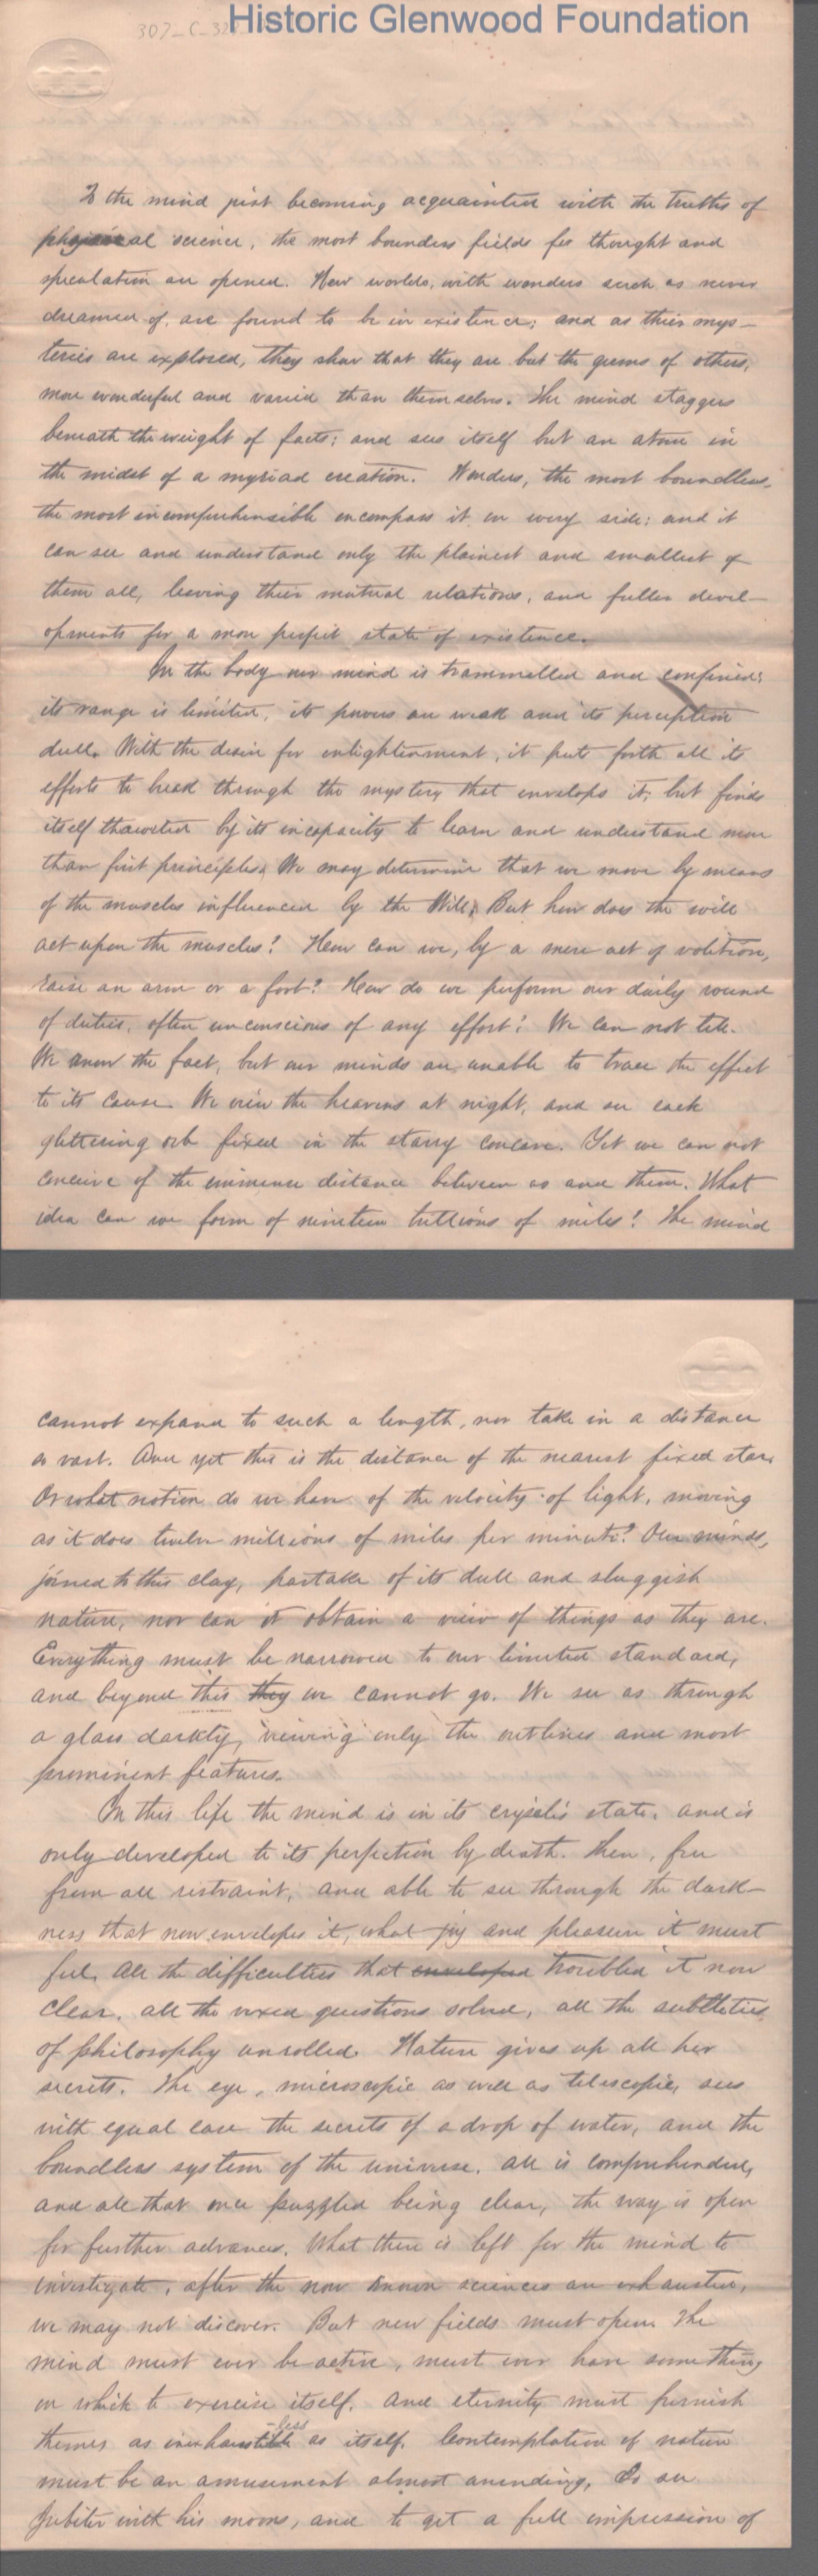 307_C_32
Historic Glenwood Foundation
To the mind just becoming acquainted with the truths of
physical science, the most boundless fields for thought and
speculation are opened. New worlds, with wonders such as never
dreamed of, are found to be in existence; and as their mys-
teries are explored, they show that they are but the germs of others,
more wonderful and varied than themselves. The mind staggers
beneath the weight of facts; and sees itself but an atom in
the midst of a myriad creation. Wonders, the most boundless,
the most incomprehensible encompass it on every side; and it
can see and understand only the plainest and smallest of
them all, leaving their mutual relations, and fuller devel-
opments for a more perfect state of existence.
In the body our mind is trammelled and confined;
its range is limited, its powers are weak and its perception
dull. With the desire for enlightenment, it puts forth all its
efforts to break through the mystery that envelops it; but finds
itself thawrted by its incapacity to learn and understand more
than first principles. We may determine that we move by means
of the muscles influenced by the Will; But how does the will
act upon the muscles? How can we, by a mere act of volition,
raise an arm or a foot? How do we perform our daily round
of duties, often unconscious of any effort? We can not tell.
We know the fact, but our minds are unable to trace the effect
to its cause. We view the heavens at night, and see each
glittering orb fixed in the starry concave. Yet we can not
conceive of the immense distance between us and them. What
idea can we form of nineteen trillions of miles! The mind
cannot expand to such a length, nor take in a distance
so vast. And yet this is the distance of the nearest fixed star.
Or what notion do we have of the velocity of light, moving
as it does twelve millions of miles per minute? Our minds,
joined to this clay, partake of its dull and sluggish
nature, nor can it obtain a view of things as they are.
Everything must be narrowed to our limited standard,
and beyond this they we cannot go. We see as through
a glass darkly, viewing only the outlines and most
prominent features.
In this life the mind is in its crysalis state, and is
only developed to its perfection by death. Then, free
from all restraint, and able to see through the dark-
ness that now envelopes it, what joy and pleasure it must
feel. All the difficulties that enveloped troubled it now
clear, all the vexed questions solved, all the subtleties
of philosophy unrolled. Nature gives up all her
secrets. The eye, microscopic as well as telescopic, sees
with equal ease the secrets of a drop of water, and the
boundless system of the universe. All is comprehended,
and all that once puzzled being clear, the way is open
for further advances. What there is left for the mind to
investigate, after the now known sciences are exhausted,
we may not discover. But new fields must open. The
mind must ever be active, must ever have something
on which to exercise itself. And eternity must furnish
themes as exhaustless as itself. Contemplation of nature
must be an amusement almost unending. To see
Jubiter with his moons, and to get a full impression of